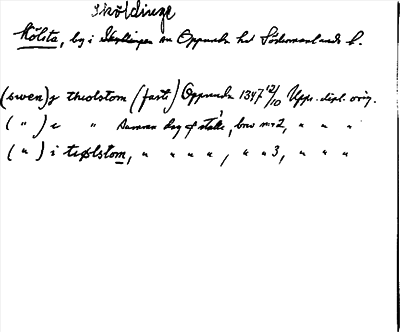 Sköldinge
Kölsta, by i sn Oppunda hd Södermanlands l.
(swen) j thiolstom (fasti) Oppunda 1347 12/10 Upps. dipl. orig.
( " ) i " Samma dag o. ställe, brev nr 2, " " "
( " ) i tiølstom, " " " ", " " 3, " " "